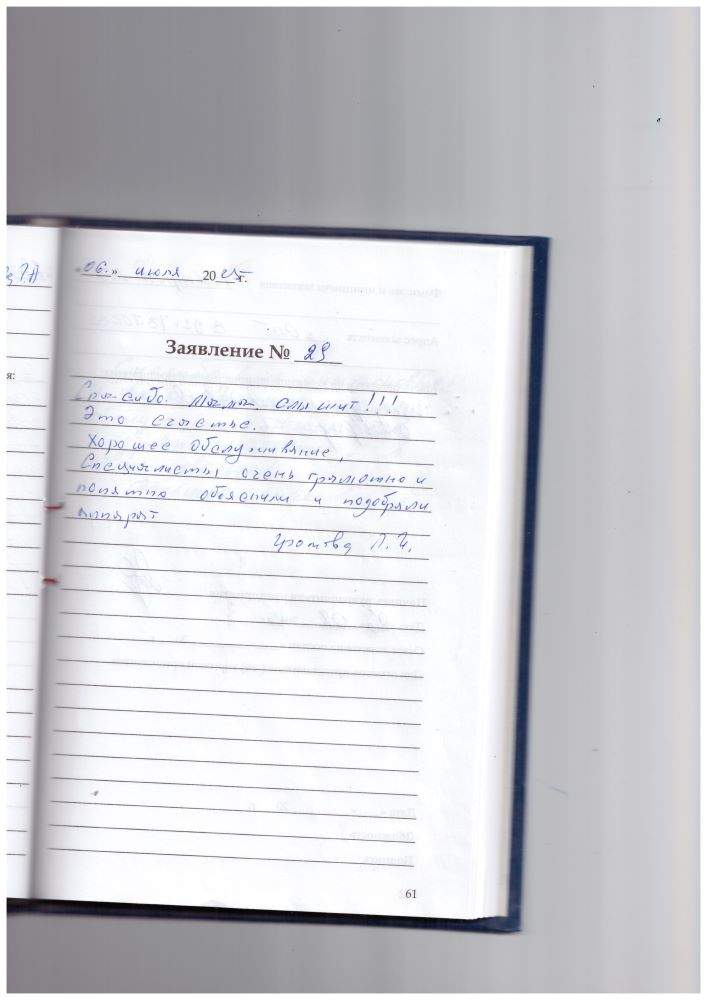 «06.» июля 2025 г.
Заявление № 29
Спасибо. Мама слышит!!!
Это счастье.
Хорошее обслуживание,
Специалисты очень грамотно и
понятно объяснили и подобрали
аппарат
Л. И.
я:
61